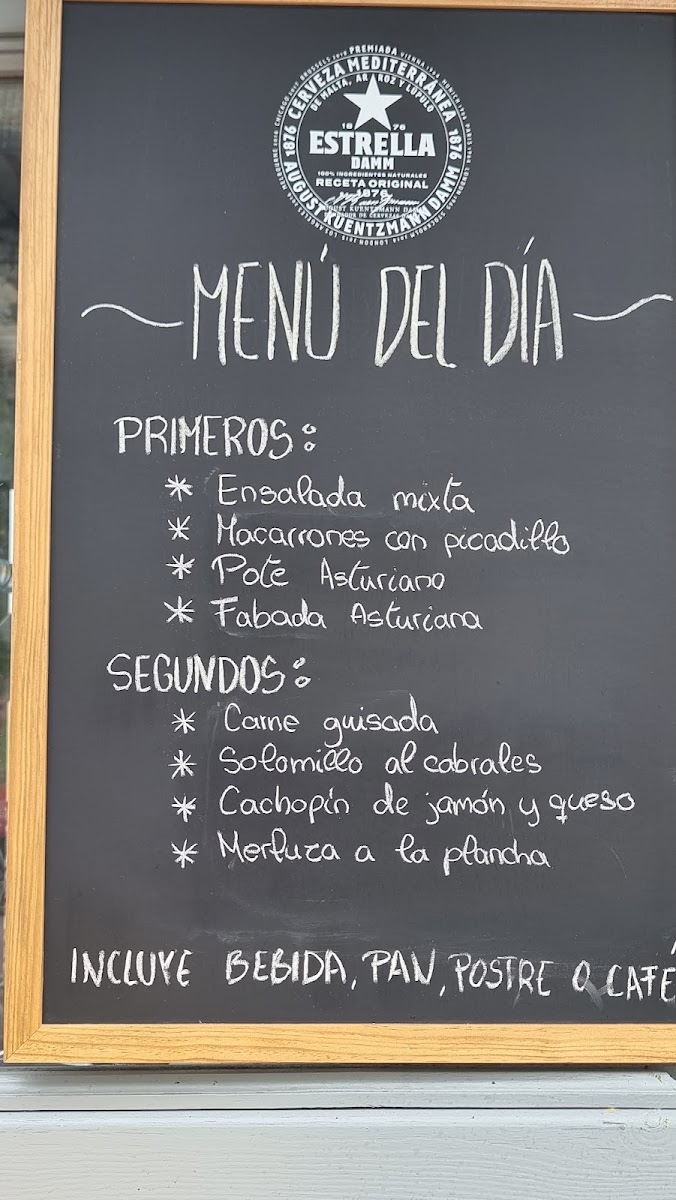 PREMIADA
CERVEZA MEDITERRÁNEA
DE MALTA, ARROZ Y LÚPULO
1876 1876
18 76
ESTRELLA
DAMM
100% INGREDIENTES NATURALES
RECETA ORIGINAL
1876
AUGUST KUENTZMANN DAMM
MENÚ DEL DÍA
PRIMEROS:
* Ensalada mixta
* Macarrones con picadillo
* Pote Asturiano
* Fabada Asturiana
SEGUNDOS:
* Carne guisada
* Solomillo al cabrales
* Cachopín de jamón y queso
* Merluza a la plancha
INCLUYE BEBIDA, PAN, POSTRE O CAFÉ